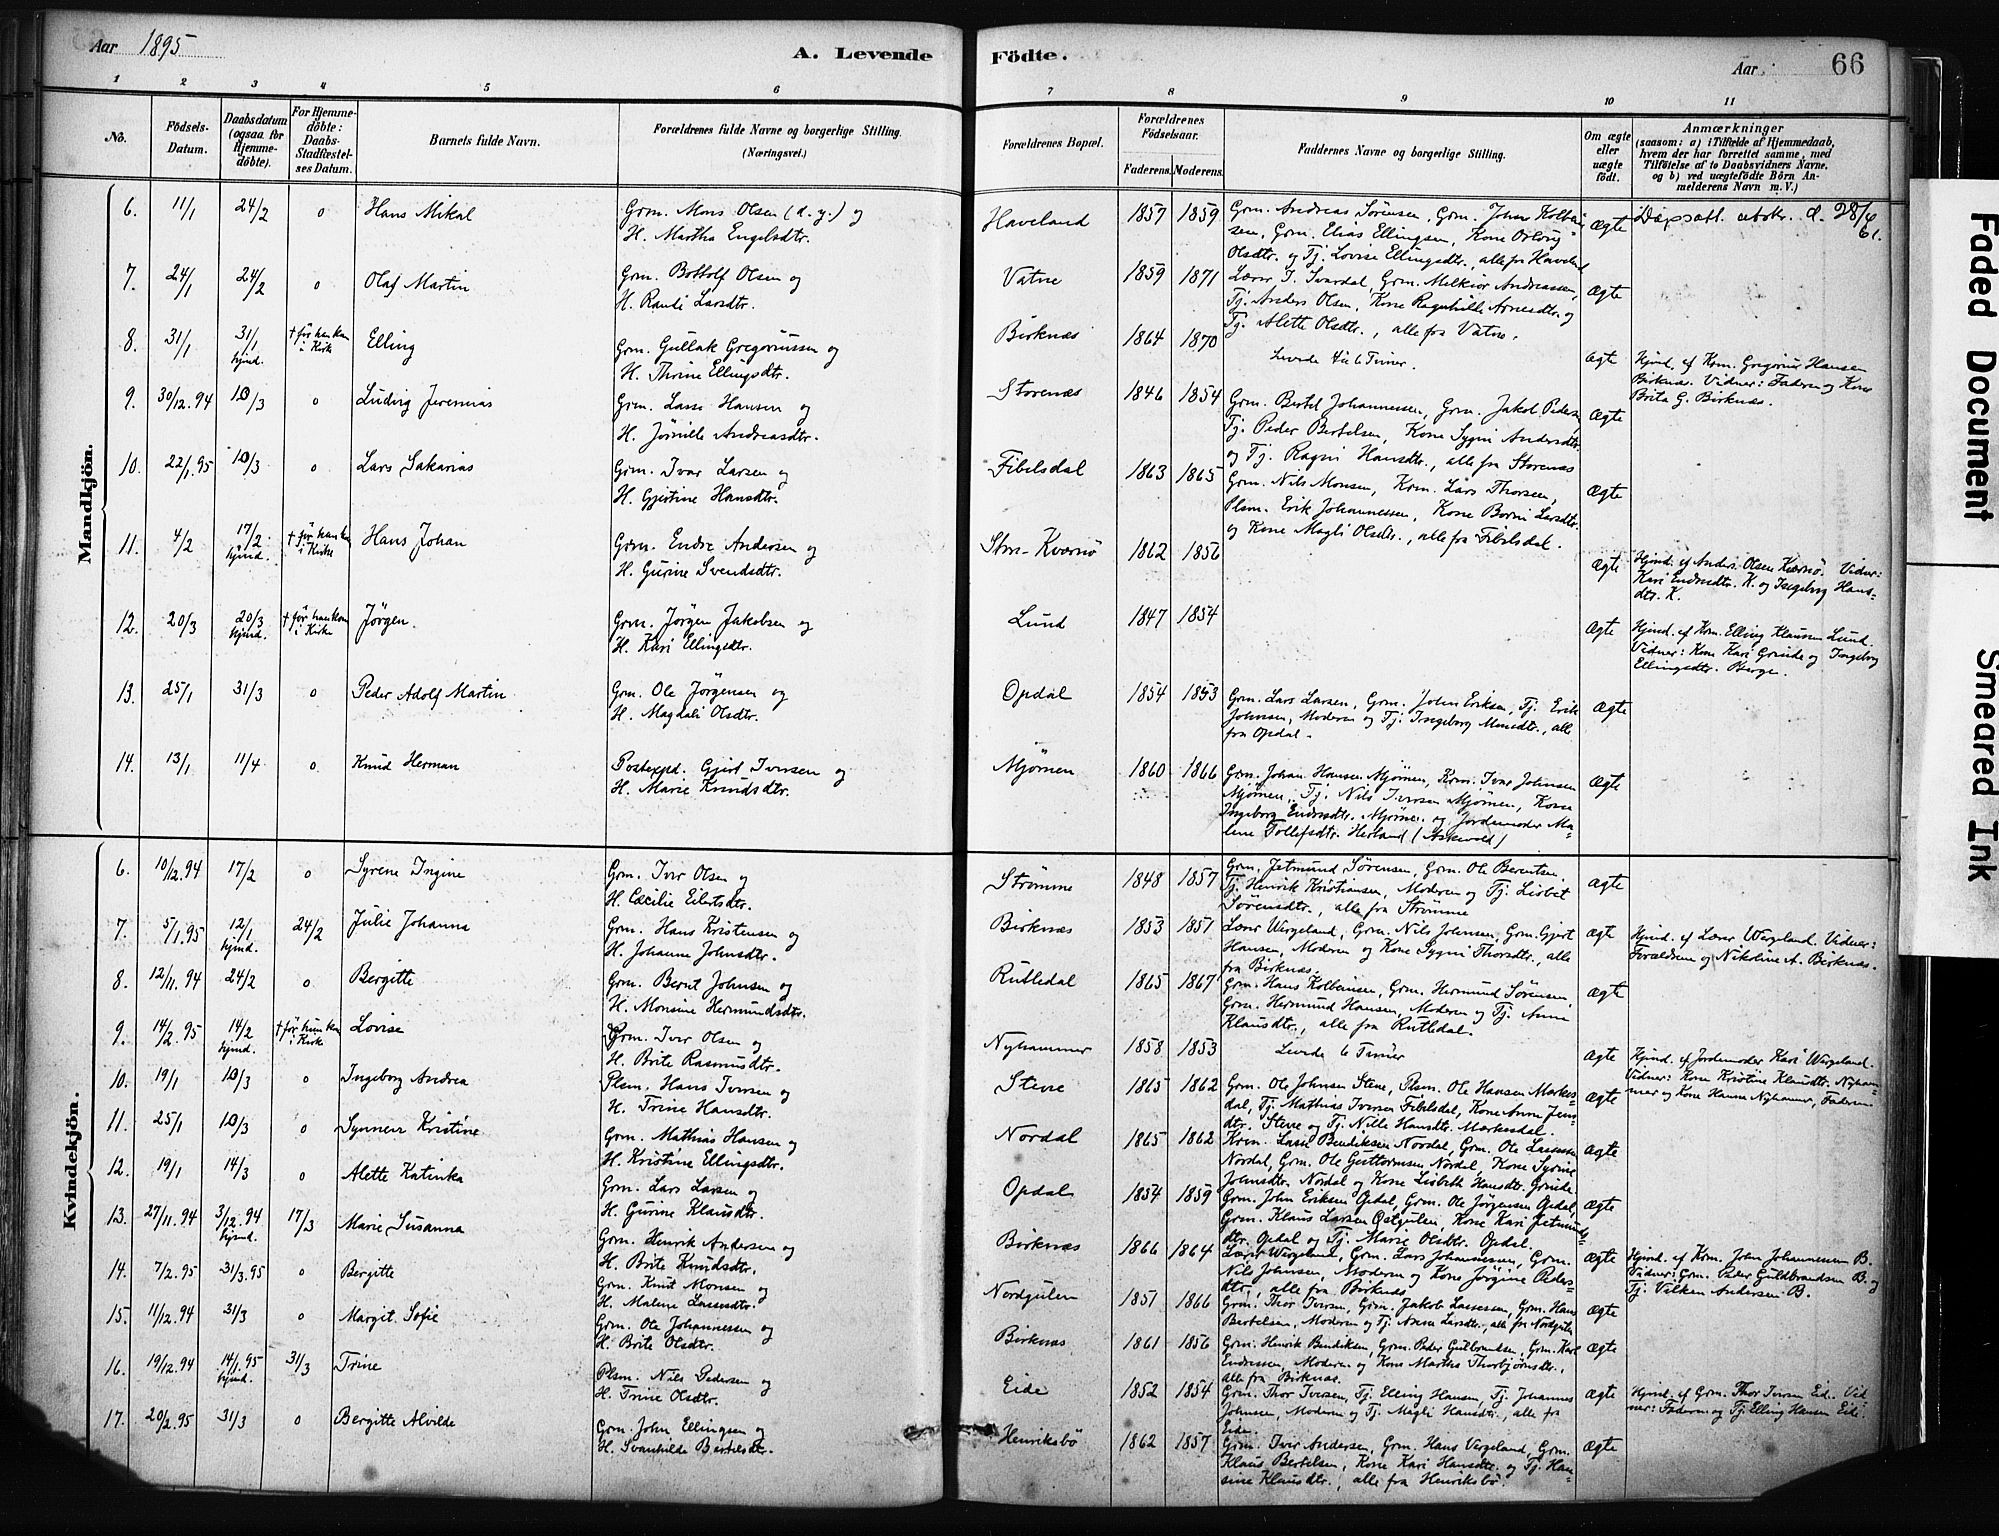 Aar 1895
A. Levende Födte.
Aar
66
1 2 3 4 5 6 7 8 9 10 11
No.
Födsels-Datum.
Daabsdatum (ogsaa for Hjemmedöbte).
For Hjemmedöbte: Daabs-Stadfæstelses Datum.
Barnets fulde Navn.
Forældrenes fulde Navne og borgerlige Stilling. (Næringsvei.)
Forældrenes Bopæl.
Forældrenes Födselsaar.
Faderens.
Moderens.
Faddernes Navne og borgerlige Stilling.
Om ægte eller uægte födt.
Anmærkninger
(saasom: a) i Tilfælde af Hjemmedaab,
hvem der har forrettet samme, med
Tilföielse af to Daabsvidners Navne,
og b) ved uægtefödte Börn Anmelderens Navn m. V.)
Mandkjön.
6. 11/1 24/2 o Hans Mikal
Grm. Mons Olsen (d. y.) og
H. Martha Engelsdtr.
Haveland 1857 1859
Grm. Andreas Sørensen, Grm. Johan Kolbein
sen, Grm. Elias Ellingsen, Kone
Olsdtr. og Tj. Lovise Ellingsdtr., alle fra Haveland
Ægte
Daapsatt. utstr. d. 28/4
61.
7. 24/1 24/2 o Olaf Martin
Grm. Bottolf Olsen og
H. Randi Larsdtr.
Vatne 1859 1871
Lærer I. Ivardal, Grm. Melkior Andreassen,
Tj. Anders Olsen, Kone Ragnhilde Arnesdtr. og
Tj. Alette Olsdtr., alle fra Vatne.
Ægte
8. 31/1 31/1 hjmd. † før han kom i Kirke Elling
Grm. Gullak Gregoriussen og
H. Thrine Ellingsdtr.
Birknæs 1864 1870
Levede 6 Timer.
Ægte
Hjmd. af Krm. Gregorius Hansen
Birknæs. Vidner: Faderen og Kone
Brita G. Birknæs.
9. 30/12.94 10/3 o Ludvig Jeremias
Grm. Lasse Hansen og
H. Jørnille Andreasdtr.
Storenæs 1846 1854
Grm. Bertel Johannessen, Grm. Jakob Peders
Tj. Peder Bertelsen, Kone Sygni Andersdtr.
og Tj. Ragni Hansdtr., alle fra Storenæs
Ægte
10. 22/1.95 10/3 o Lars Sakarias
Grm. Ivar Larsen og
H. Gjertine Hansdtr.
Fibelsdal 1863 1865
Grm. Nils Monsen, Krm. Lars Thorsen,
Plsm. Erik Johannessen, Kone Borni Larsdtr.
og Kone Magli Olsdtr., alle fra Fibelsdal.
Ægte
11. 4/2 17/2 hjmd. † før han kom i Kirke Hans Johan
Grm. Endre Andersen og
H. Gurine Svendsdtr.
Stor-Kværnø 1862 1856
Ægte
Hjmd. af Anders Olsen Kværnø. Vidner:
Kari Endresdtr. K. og Ingeborg Hans-
dtr. K.
12. 20/3 20/3 hjmd. † før han kom i Kirke Jörgen.
Grm. Jörgen Jakobsen og
H. Kari Ellingsdtr.
Lund 1847 1854
Ægte
Hjmd. af Krm. Elling Klausen Lund.
Vidner: Kone Kari Grinde og Ingeborg
Ellingsdtr. Berge.
13. 25/1 31/3 o Peder Adolf Martin
Grm. Ole Jörgensen og
H. Magdali Olsdtr.
Opdal 1854 1853
Grm. Lars Larsen, Grm. John Eriksen, Tj. Erik
Johnsen, Moderen og Tj. Ingeborg Monsdtr., alle
fra Opdal.
Ægte
14. 13/1 11/4 o Knud Herman
Postexpd. Gjert Iversen og
H. Marie Knudsdtr.
Mjømen 1860 1866
Grm. Johan Hansen Mjømen, Krm. Ivar Johnsen
Mjømen, Tj. Nils Iversen Mjømen, Kone
Ingeborg Endresdtr. Mjømen og Jordemoder Ma-
lene Tollefsdtr. Herland (Askevold)
Ægte
Kvindekjön.
6. 10/12.94 17/2 o Syrene Ingine
Grm. Iver Olsen og
H. Cæcilie Eilertsdtr.
Strømme 1848 1857
Grm. Jetmund Sørensen, Grm. Ole Berentsen,
Tj. Henrik Kristiansen, Moderen og Tj. Lisbet
Sørensdtr., alle fra Strømme
Ægte
7. 5/1.95 12/1 hjmd. 24/2 Julie Johanna
Grm. Hans Kristensen og
H. Johanne Johnsdtr.
Birknæs 1853 1851
Lærer Wergeland, Grm. Nils Johnsen, Grm. Gjert
Hansen, Moderen og Kone Sygni Thorsdtr., alle
fra Birknæs.
Ægte
Hjmd. af Lærer Wergeland. Vidner:
Forældrene og Nikoline A. Birknæs.
8. 12/11.94 24/2 o Bergitte
Grm. Bernt Johnsen og
H. Monsine Hermundsdtr.
Rutledal 1865 1867
Grm. Hans Kolbeinsen, Grm. Hermund Sørensen,
Grm. Hermund Hansen, Moderen og Tj. Anne
Klausdtr., alle fra Rutledal.
Ægte
9. 14/2.95 14/2 hjmd. † før hun kom i Kirke Lovise
Grm. Iver Olsen og
H. Brite Rasmusdtr.
Nyhammer 1858 1853
Levede 6 Timer
Ægte
Hjmd. af Jordemoder Kari Wergeland.
Vidner: Kone Kristine Klausdtr. Nyham-
mer og Kone Hanna Nyhammer, Faderen
10. 19/1 10/3 o Ingeborg Andrea
Plsm. Hans Iversen og
H. Trine Hansdtr.
Steve 1865 1862
Grm. Ole Johnsen Steve, Plsm. Ole Hansen Markes-
dal, Tj. Mathias Iversen Fibelsdal, Kone Anne Jens-
dtr. Steve og Tj. Nille Hansdtr. Markesdal.
Ægte
11. 25/1 10/3 o Synneve Kristine
Grm. Mathias Hansen og
H. Kristine Ellingsdtr.
Nordal 1865 1862
Krm. Lasse Bendiksen Nordal, Grm. Ole Lassesen
Nordal, Grm. Ole Guttormsen Nordal, Kone Syrine
Johnsdtr. Nordal og Kone Lisbeth Hansdtr. Grinde
Ægte
12. 19/1 14/3 o Alette Katinka
Grm. Lars Larsen og
H. Gurine Klausdtr.
Opdal 1854 1859
Grm. John Eriksen Opdal, Grm. Ole Jørgensen Opdal,
Grm. Klaus Larsen Østgulen, Kone Kari Jetmunds-
dtr. Opdal og Tj. Marie Olsdtr. Opdal
Ægte
13. 27/11.94 3/12.94 hjmd. 17/3 Marie Susanna
Grm. Henrik Andersen og
H. Brite Knudsdtr.
Birknæs 1866 1864
Lærer Wergeland, Grm. Lars Johannessen, Grm.
Nils Johnsen, Moderen og Kone Jørgine Peders-
dtr., alle fra Birknæs
Ægte
Hjmd. af Krm. John Johannessen B.
Vidner: Grm. Peder Guldbrandsen B. og
Tj. Vilken Andersen B.
14. 7/2.95 31/3.95 o Bergitte
Grm. Knut Monsen og
H. Malene Lassesdtr.
Nordgulen 1851 1866
Grm. Thor Iversen, Grm. Jakob Lassesen, Grm. Hans
Bertelsen, Moderen og Tj. Anna Larsdtr., alle fra Nordgulen
Ægte
15. 11/12.94 31/3 o Margit Sofie
Grm. Ole Johannessen og
H. Brite Olsdtr.
Birknæs 1861 1856
Grm. Henrik Bendiksen, Grm. Peder Gulbrandsen, Grm. Karl
Endresen, Moderen og Kone Martha Thorbjørnsdtr.,
alle fra Birknæs.
Ægte
16. 19/12.94 14/1.95 hjmd. 31/3 Trine
Plsm. Nils Pedersen og
H. Trine Olsdtr.
Eide 1852 1854
Grm. Thor Iversen, Tj. Elling Hansen, Tj. Johannes
Johnsen, Moderen og Tj. Magli Hansdtr., alle fra
Eide.
Ægte
Hjmd. af Grm. Thor Iversen Eide. Vid
ner: Faderen og Tj. Elling Hansen Eide.
17. 20/2.95 31/3 o Bergitte Alvilde
Grm. John Ellingsen og
H. Svanhilde Bertelsdtr.
Henriksbö 1862 1857
Grm. Iver Andersen, Grm. Hans Vergeland, Grm.
Klaus Bertelsen, Kone Kari Hansdtr. og Tj. Han-
sine Klausdtr., alle fra Henriksbö.
Ægte
Faded Document
Smeared Ink